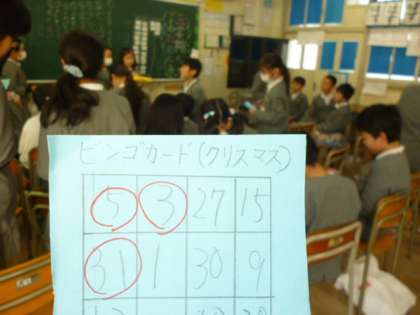 ビンゴカード(クリスマス)
5 3 27 15
31 1 30 9